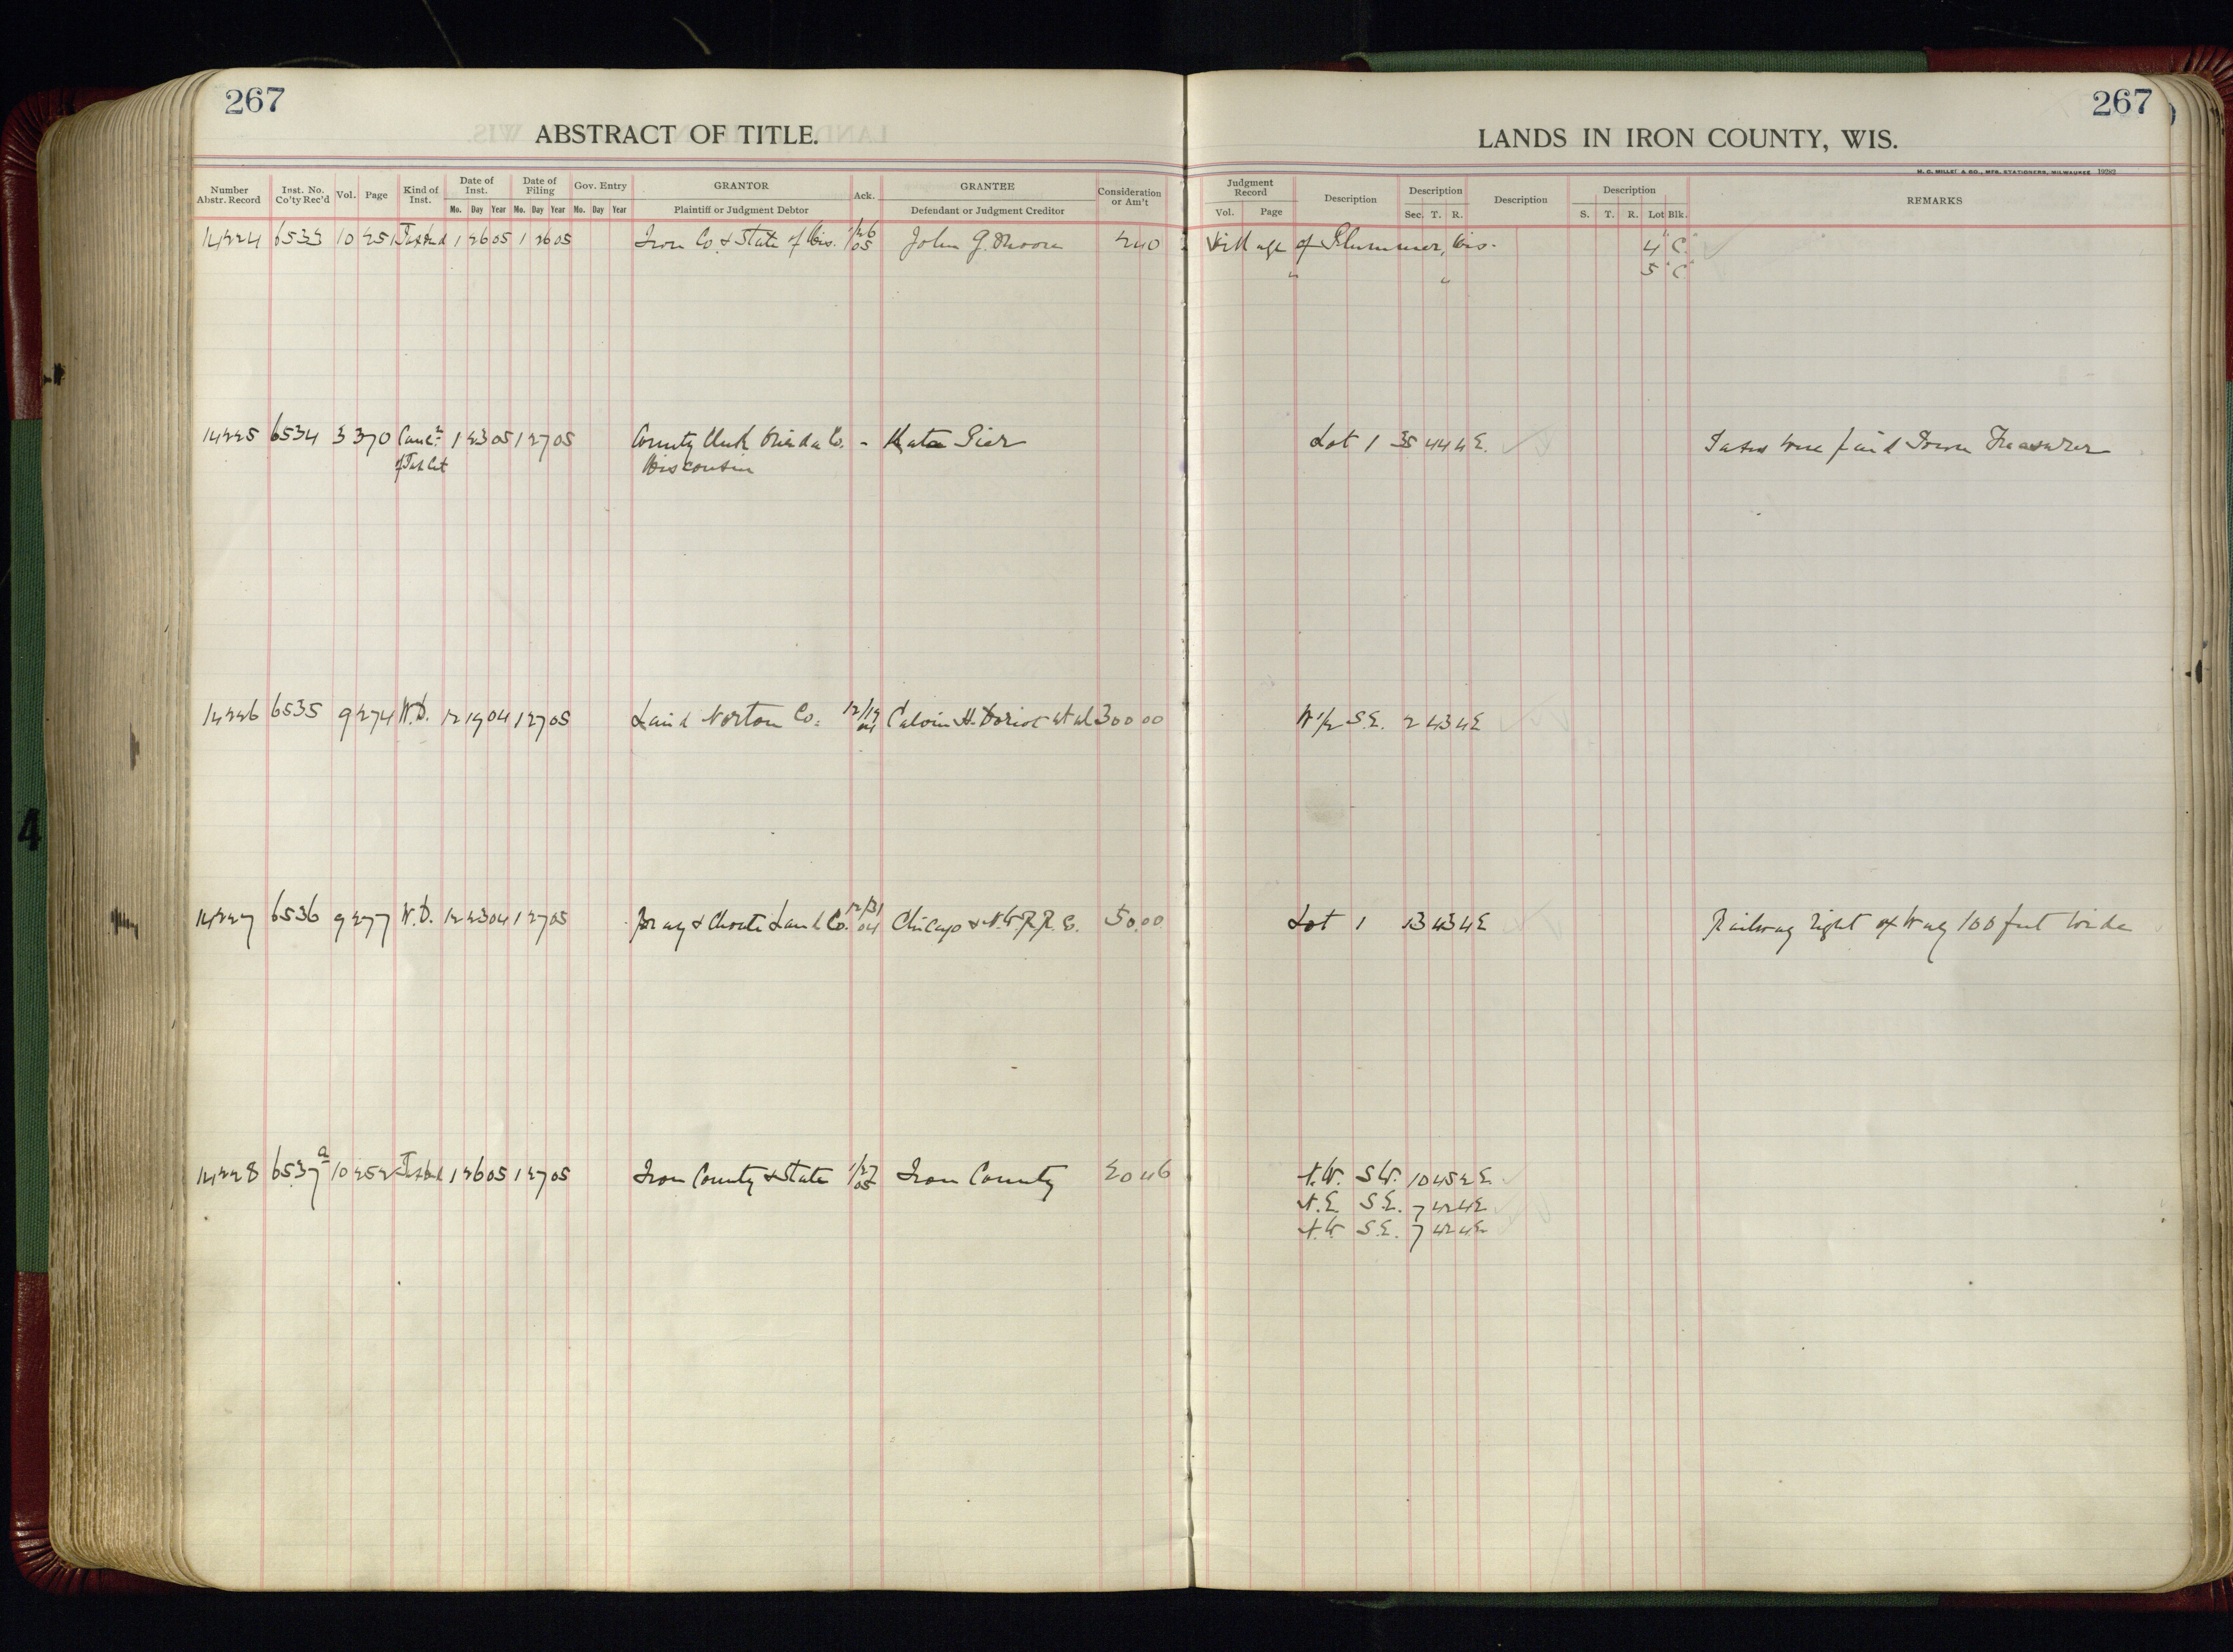 267
267
ABSTRACT OF TITLE.
LANDS IN IRON COUNTY, WIS.
H. C. MILLER & CO., MFG. STATIONERS, MILWAUKEE 19282
Number Abstr. Record | Inst. No. Co'ty Rec'd | Vol. | Page | Kind of Inst. | Date of Inst. | Date of Filing | Gov. Entry | GRANTOR | Ack. | GRANTEE | Consideration or Am't | Judgment Record | Description | Description | Description | Description | REMARKS
Mo. Day Year Mo. Day Year Mo. Day Year | Plaintiff or Judgment Debtor | Defendant or Judgment Creditor | Vol. Page | Sec. T. R. | S. T. R. Lot Blk.
14224 6533 10 251 Tax Deed 1 26 05 1 26 05 Iron Co. & State of Wis. 1/26 05 John G. Moore 2 40 Village of Plummer, Wis. 4 "C"
" " 5 "C"
14225 6534 3 370 Canc. 1 23 05 1 27 05 County Clerk Oneida Co. - Kate Pier Lot 1 35 44 4E. Taxes were paid Town Treasurer
of Tax Cert Wisconsin
14226 6535 9 274 W.D. 12 19 04 1 27 05 Laird Norton Co. 12/19 04 Calvin H. et al 300 00 W 1/2 S.E. 2 43 4E
14227 6536 9 277 W.D. 12 23 04 1 27 05 Bray & Choate Land Co. 12/31 04 Chicago & N.W. R.R. Co. 50.00 Lot 1 13 43 4E Railway right of Way 100 feet wide
14228 6537a 10 252 Tax Deed 1 26 05 1 27 05 Iron County & State 1/27 05 Iron County 20 46 N.W. S.W. 10 45 2E.
N.E. S.E. 7 42 4E
N.W. S.E. 7 42 4E
4